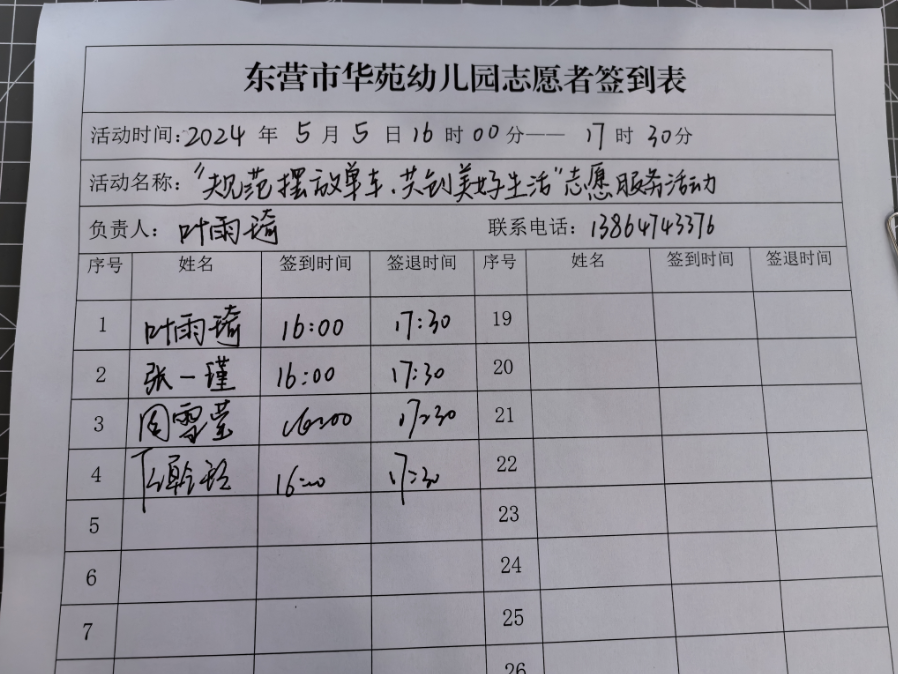 东营市华苑幼儿园志愿者签到表
活动时间:2024 年 5 月 5 日 16 时 00 分—— 17 时 30 分
活动名称:"规范摆放单车、共创美好生活"志愿服务活动
负责人: 叶雨琦 联系电话: 13864743376
序号 姓名 签到时间 签退时间 序号 姓名 签到时间 签退时间
1 叶雨琦 16:00 17:30 19
2 张一瑾 16:00 17:30 20
3 周雪莹 16:00 17:30 21
4 16:00 17:30 22
5 23
6 24
7 25
26